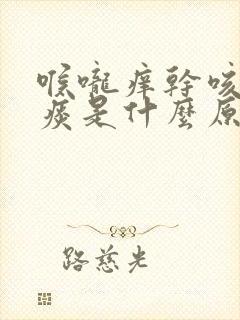 喉嚨痒幹咳
痰是什麼原
路慈光